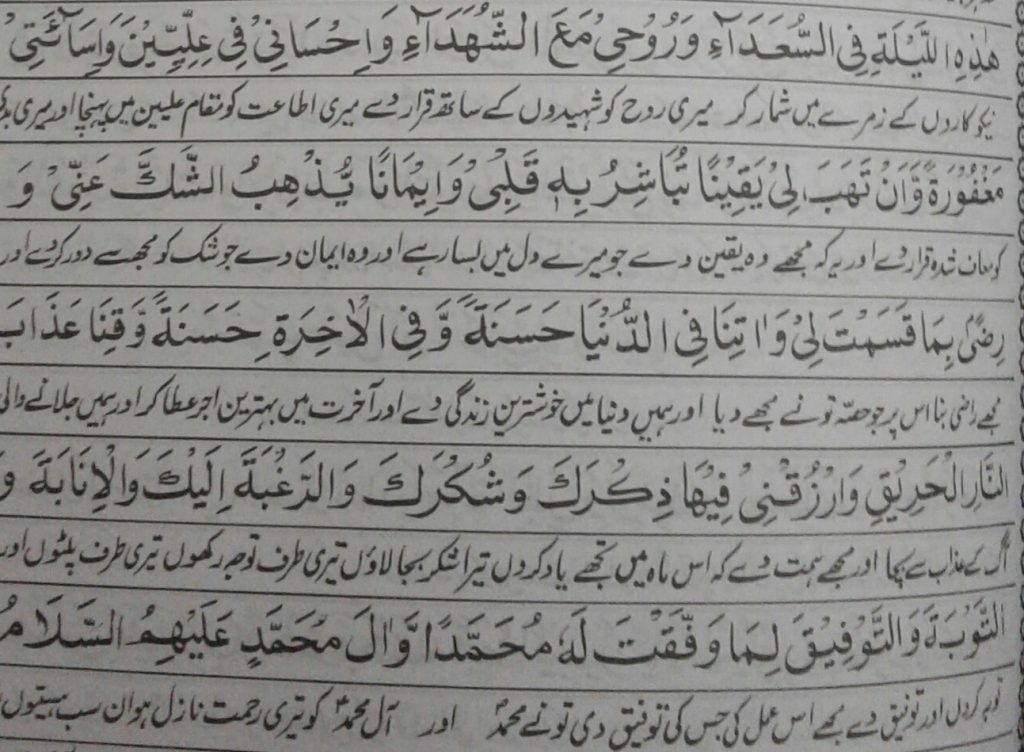 هٰذِهِ اللَّيْلَةِ فِى السُّعَدَآءِ وَرُوْحِىْ مَعَ الشُّهَدَآءِ وَاِحْسَانِىْ فِىْ عِلِّيِّيْنَ وَاِسَآئَتِىْ
نیکو کاروں کے زمرے میں شمار کر میری روح کو شہیدوں کے ساتھ قرار دے میری اطاعت کو مقام علیین میں پہنچا اور میری بدی
مَغْفُوْرَةً وَّاَنْ تَهَبَ لِىْ يَقِيْنًا تُبَاشِرُ بِهٖ قَلْبِىْ وَاِيْمَانًا يُّذْهِبُ الشَّكَّ عَنِّىْ وَ
کو معاف شدہ قرار دے اور یہ کہ مجھے وہ یقین دے جو میرے دل میں بسا رہے اور وہ ایمان دے جو شک کو مجھ سے دور کردے اور
رِضًى بِمَا قَسَمْتَ لِىْ وَاٰتِنَا فِى الدُّنْيَا حَسَنَةً وَّفِى الْاٰخِرَةِ حَسَنَةً وَّقِنَا عَذَابَ
مجھے راضی بنا اس پر جو حصّہ تو نے مجھے دیا اور ہمیں دنیا میں خوشترین زندگی دے اور آخرت میں بہترین اجر عطا کر اور ہمیں جلانے والی
النَّارِ الْحَرِيْقِ وَارْزُقْنِىْ فِيْهَا ذِكْرَكَ وَشُكْرَكَ وَالرَّغْبَةَ اِلَيْكَ وَالْاِنَابَةَ وَ
آگ کے عذاب سے بچا اور مجھے ہمت دے کہ اس ماہ میں تجھے یاد کروں تیرا شکر بجا لاؤں تیری طرف توجہ رکھوں تیری طرف پلٹوں اور
التَّوْبَةَ وَالتَّوْفِيْقَ لِمَا وَفَّقْتَ لَهٗ مُحَمَّدًا وَّاٰلَ مُحَمَّدٍ عَلَيْهِمُ السَّلَامُ
توبہ کروں اور توفیق دے مجھے اس عمل کی جس کی توفیق دی تو نے محمدؐ اور آل محمدؐ کو تیری رحمت نازل ہو ان سب ہستیوں